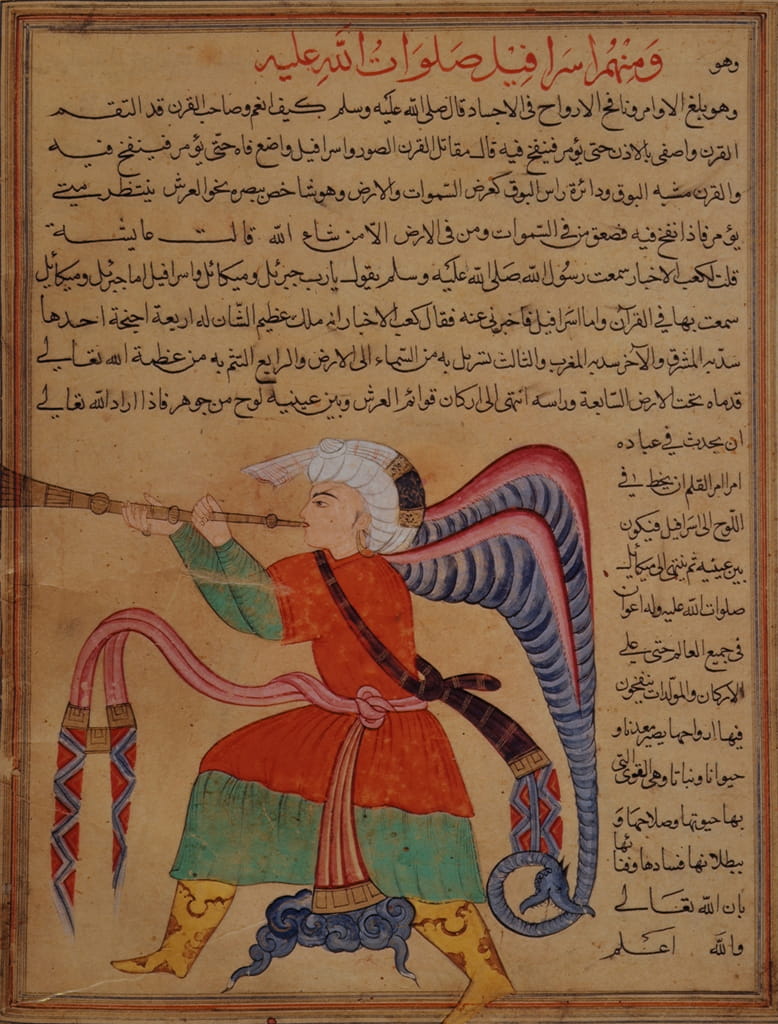 ومنهم اسرافيل صلوات الله عليه
وهو
وهو يبلغ الاوامر ونافخ الارواح في الاجساد قال صلى الله عليه وسلم كيف انعم وصاحب القرن قد التقم
القرن واصغى بالاذن حتى يؤمر فينفخ فيه قال مقاتل القرن الصور واسرافيل واضع فاه حتى يؤمر فينفخ فيه
والقرن مشبه البوق ودائرة راس البوق كعرض السموات والارض وهو شاخص ببصره نحو العرش ينتظر متى
يؤمر فاذا نفخ فيه فصعق من في السموات ومن في الارض الا من شاء الله قالت عايشة
قلت لكعب الاخبار سمعت رسول الله صلى الله عليه وسلم يقول يارب جبرئل وميكائل واسرافيل اما جبرئل وميكائل
سمعت بها في القرآن واما اسرافيل فاخبرني عنه فقال كعب الاخبار انه ملك عظيم الشان له اربعة اجنحة احدها
سد به المشرق والآخر سد به المغرب والثالث تسربل به من السماء الى الارض والرابع التثم به من عظمة الله تعالى
قدماه تحت الارض السابعة وراسه انتهى الى اركان قوائم العرش وبين عينيه لوح من جوهر فاذا اراد الله تعالى
ان يحدث في عباده
امرا امر القلم ان يخط في
اللوح الى اسرافيل فيكون
بين عينيه ثم ينتهى الى ميكائل
صلوات الله عليه وله اعوان
في جميع العالم حتى على
الاركان والمولدات ينفخون
فيها ارواحها يصير معدنا و
حيوانا ونباتا وهي القوى التي
بها حيوتها وصلاحها و
ببطلانها فسادها وفنائها
بان الله تعالى
والله اعلم